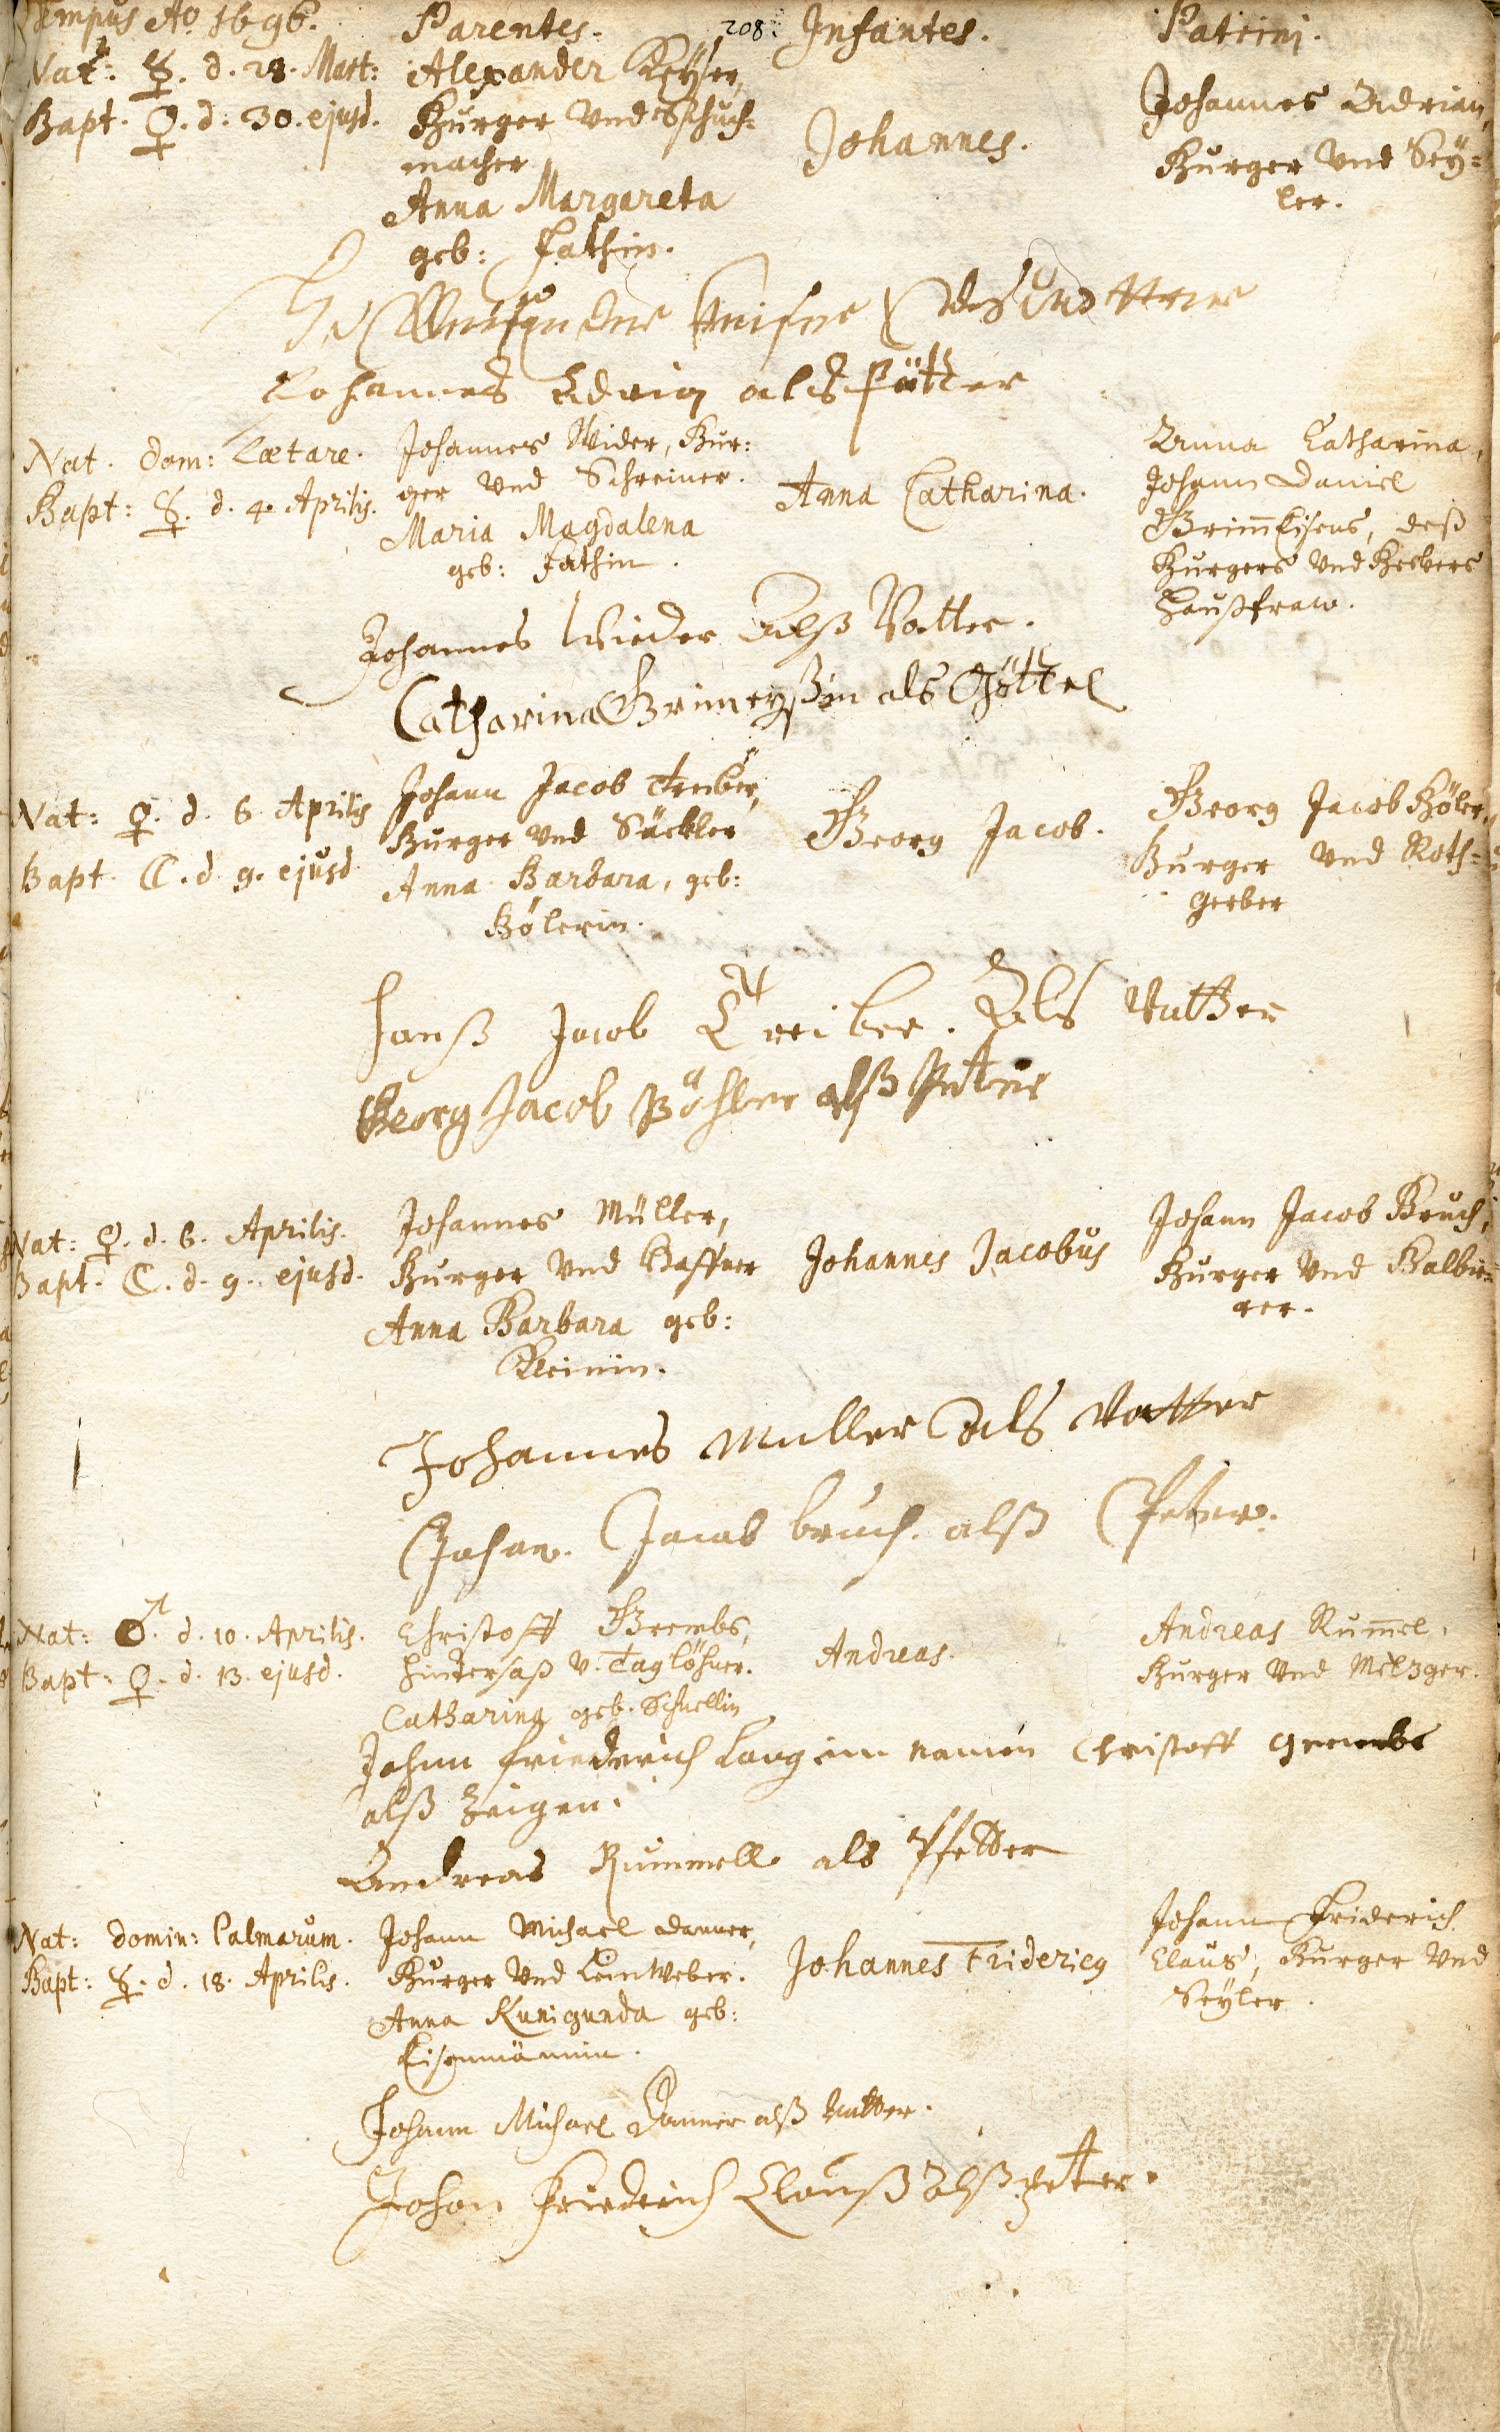 Tempus Ao. 1696. Parentes. 208. Infantes. Patrini.
Nat: ☿. d. 28. Mart: Alexander Keyser,
Bapt. ♀. d. 30. ejusd. Burger und Schuch-
macher
Anna Margareta
geb: Fathin.
Johannes.
Johannes Adrian,
Burger und Sey-
ler.
Johannes Adrian als Pfätter
Nat. dom: Lætare.
Bapt: ☿. d. 4. Aprilis.
Johannes Wider, Bur-
ger und Schreiner.
Maria Magdalena
geb: Fathin.
Anna Catharina.
Anna Catharina,
Johann Daniel
Grim̄Eisens, deß
Burgers und
Haußfraw.
Johannes Wieder Alß Vatter.
Catharina Grimeyßin als Göttel
Nat: ♀. d. 6 Aprilis
Bapt. ☾. d. 9. ejusd
Johann Jacob Treiber,
Burger und Säckler
Anna Barbara, geb:
Bölerin.
Georg Jacob.
Georg Jacob Böler,
Burger und Roth-
gerber
Hanß Jacob Treiber. Als Vatter
Georg Jacob Böhler alß Petter
Nat: ♀. d. 6. Aprilis.
Bapt. ☾. d. 9. ejusd.
Johannes Müller,
Burger und Haffner
Anna Barbara geb:
Kleinin.
Johannes Jacobus
Johann Jacob Bruch,
Burger und Balbie-
rer.
Johannes Muller als Vatter
Johan. Jacob bruch. alß Peter.
Nat: ♂. d. 10. Aprilis.
Bapt: ♀. d. 13. ejusd.
Christoff Grembs,
Hindersaß v. Taglöhner.
Catharina geb. Schnellin
Andreas.
Andreas Rum̄el,
Burger und Metzger.
Johan friederich Lang im namen Christoff grembs
alß Zeigen.
Andreas Rummell als Pfetter
Nat: domin: Palmarum.
Bapt: ☿. d. 18. Aprilis.
Johann Michael Danner,
Burger und Leinweber.
Anna Kunigunda geb:
Eisenmännin.
Johannes Fridericg
Johann Friderich
Claus, Burger und
Seyler.
Johann Michael Danner alß Vatter.
Johan Friederich Clauß Alß peter.